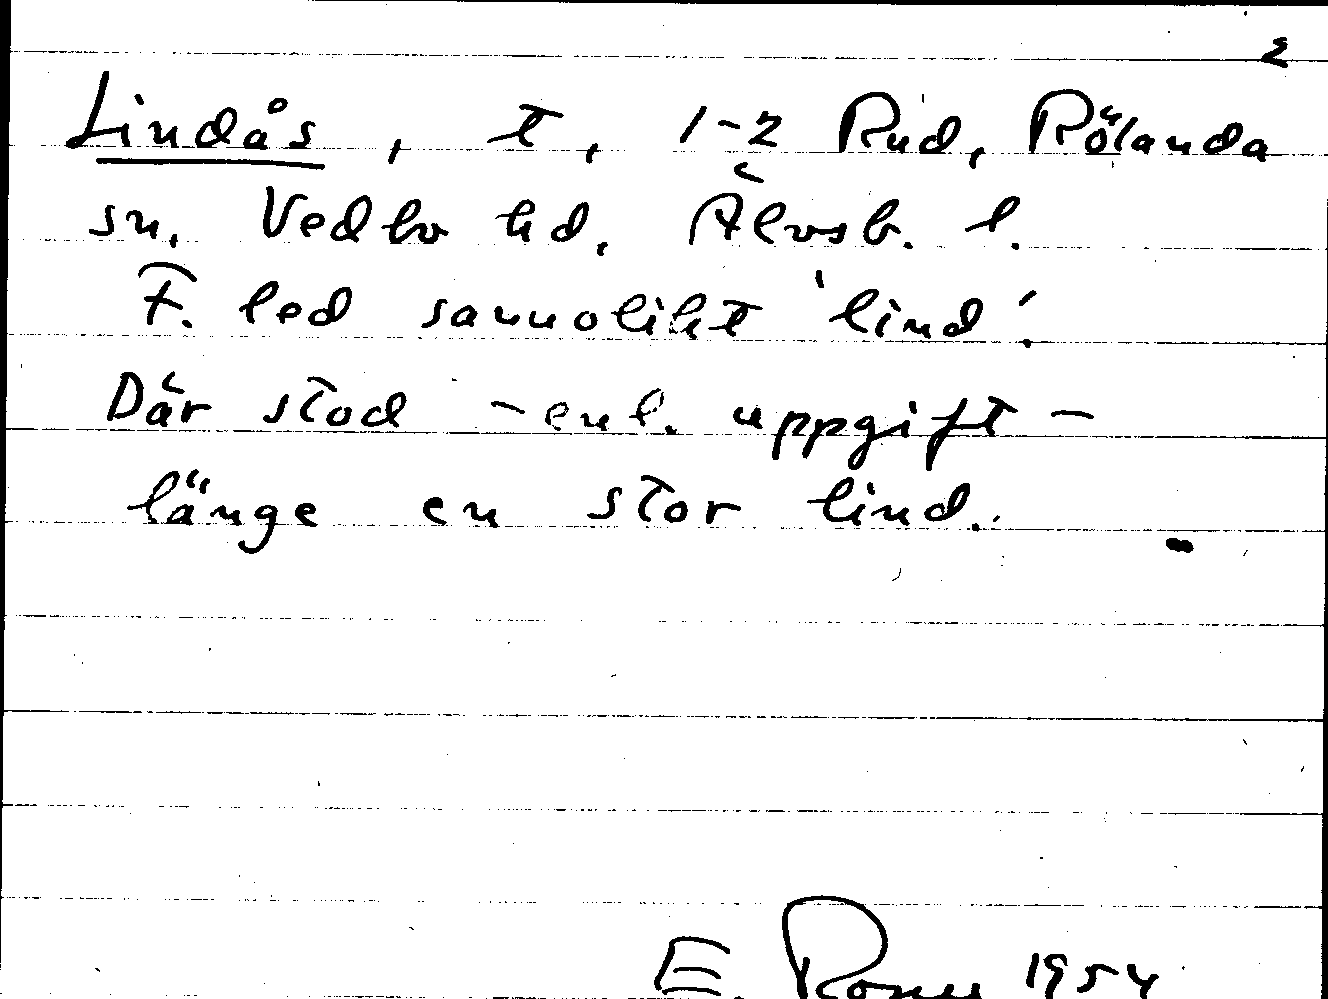 2
Lindås, t, 1-2 Rud, Rölanda
sn. Vedbo hd. Älvsb. l.
F. led sannolikt 'lind'.
Där stod - enl. uppgift -
länge en stor lind.
E. 1954